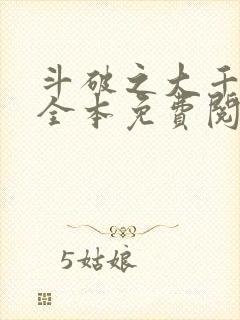 斗破之大千
全本免費閱
5姑娘